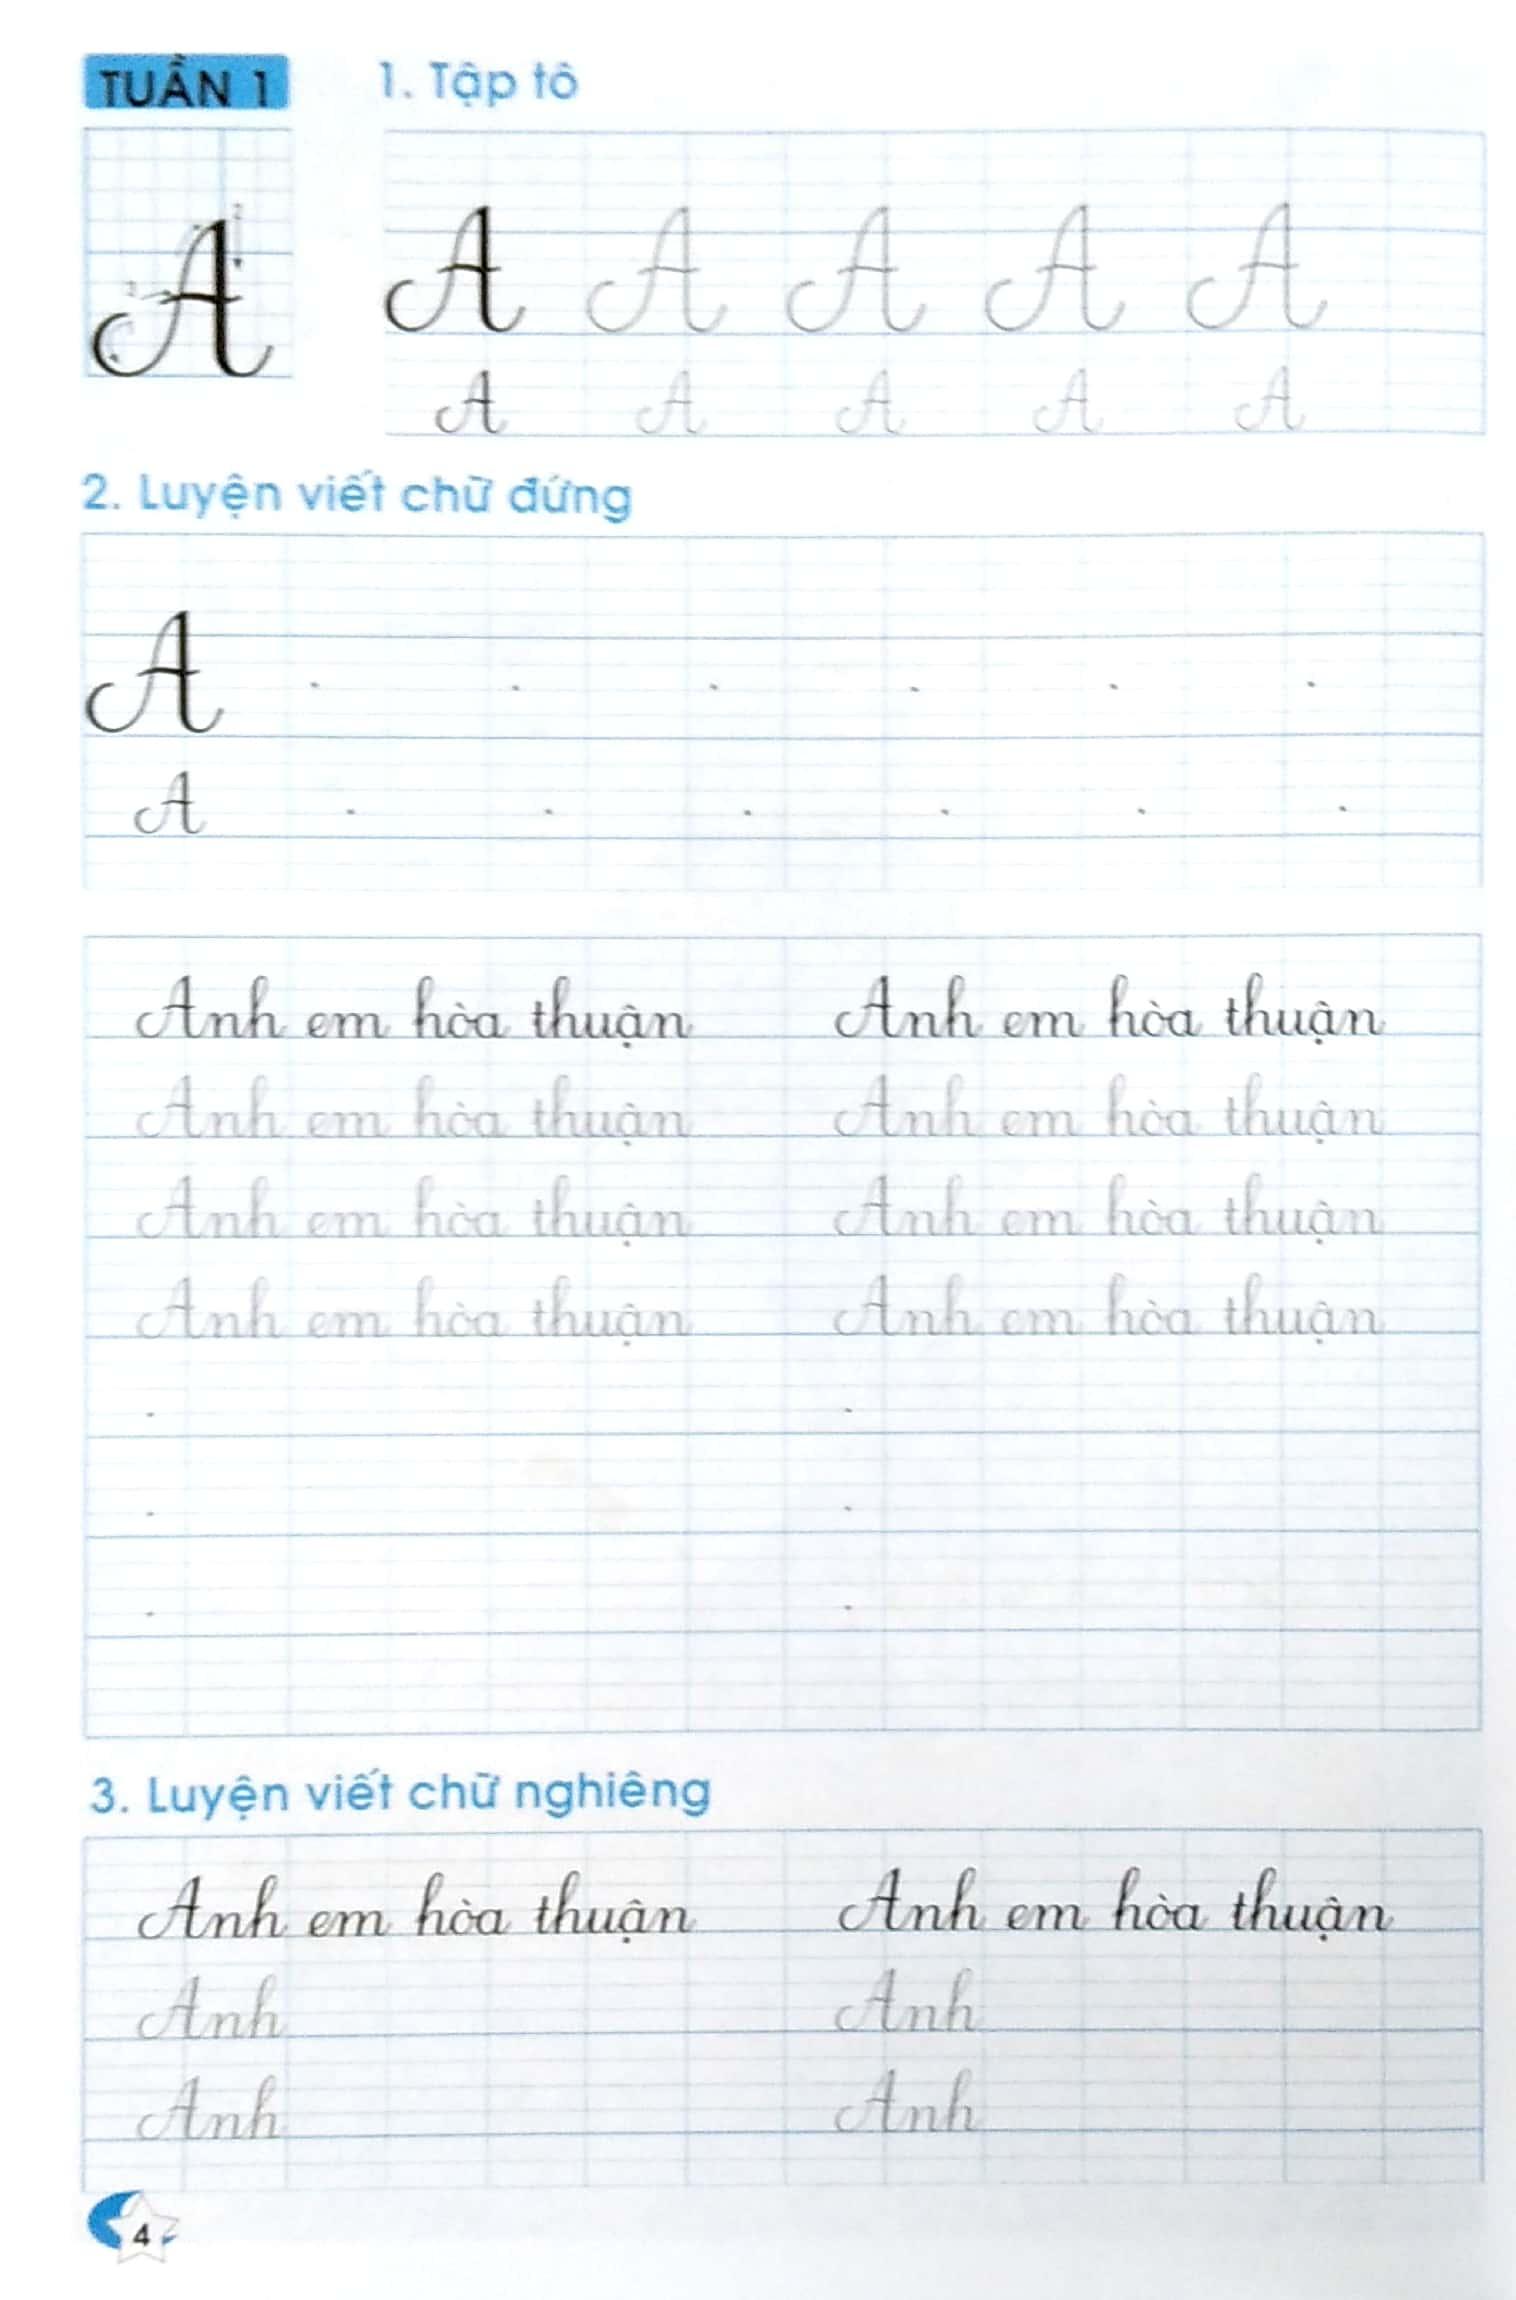 TUẦN 1
1. Tập tô
A
1
2
A A A A A
A A A A A
2. Luyện viết chữ đứng
A
A
Anh em hòa thuận Anh em hòa thuận
Anh em hòa thuận Anh em hòa thuận
Anh em hòa thuận Anh em hòa thuận
Anh em hòa thuận Anh em hòa thuận
3. Luyện viết chữ nghiêng
Anh em hòa thuận Anh em hòa thuận
Anh Anh
Anh Anh
4